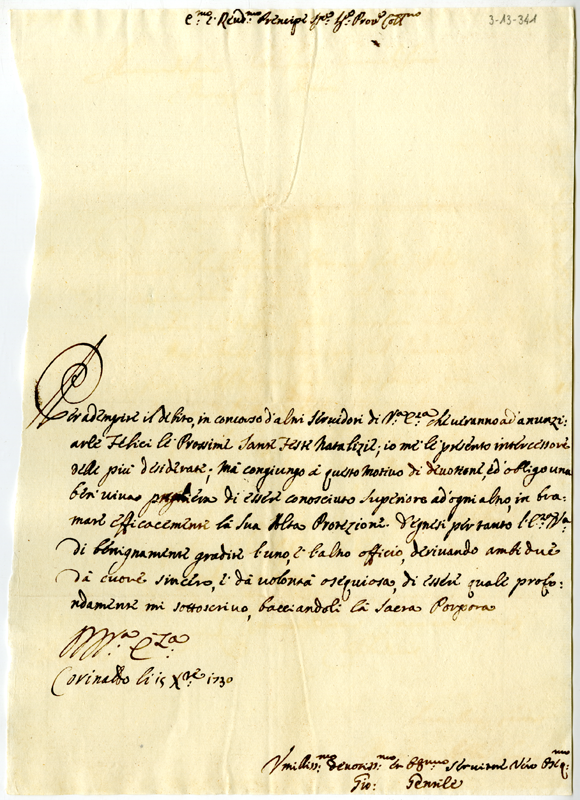 E.mo e Rend.mo Principe Sig.r Sig.r Pron.e Coll.mo
3-13-341
Per adempire il debito, in concorso d'altri servidori di V.a E.za che veranno ad anunzi:
arle Felici le Prossime Sante Feste Natalizie; io me le presento intercessore
delle più desiderate; mà congiungo à questo motivo di devotione, ed obligo una
ben viva di essere conosciuto Superiore ad'ogni altro, in bra:
mare efficacemente la Sua Alta Protezione. Degnesi per tanto l'E.za V.a
di benignamente gradire l'uno, e l'altro officio, derivando ambidue
dà cuore sincero, e dà volontà osequiosa, di essere quale profo:
ndamente mi sottoscrivo, bacciandoli la Sacra Porpora
D. V.a E.za
Corinaldo li 15 Xbre 1730
Umiliss:mo devotiss:mo et Obg.mo Servitore Vero Oseq:mo
Gio: Gentile